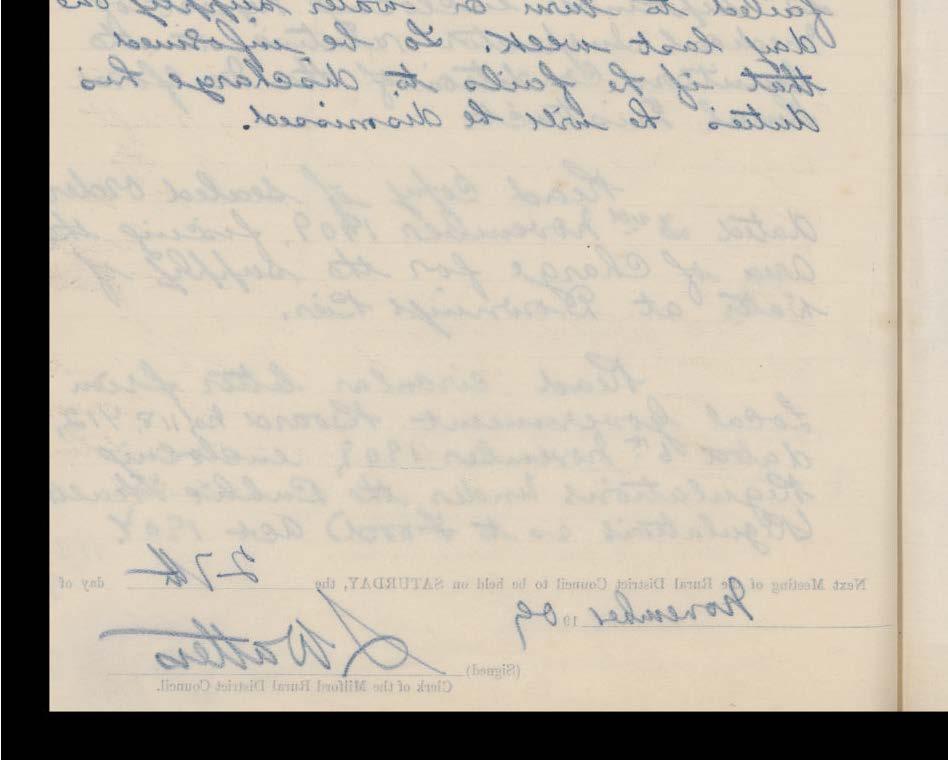 failed to turn on water supply one
day last week. To be informed
that if he fails to discharge his
duties he will be dismissed.
Read copy of sealed order
dated 3rd November 1909, fixing the
area of charge for the supply of
Water at Downings Pier.
Read circular letter from
Local Government Board
dated 6th November 1909, enclosing
Regulations under the Public Health
(Regulations as to Food) Act 1907
Next Meeting of the Rural District Council to be held on SATURDAY, the 27th day of
November 1909
(Signed) J Watters
Clerk of the Milford Rural District Council.